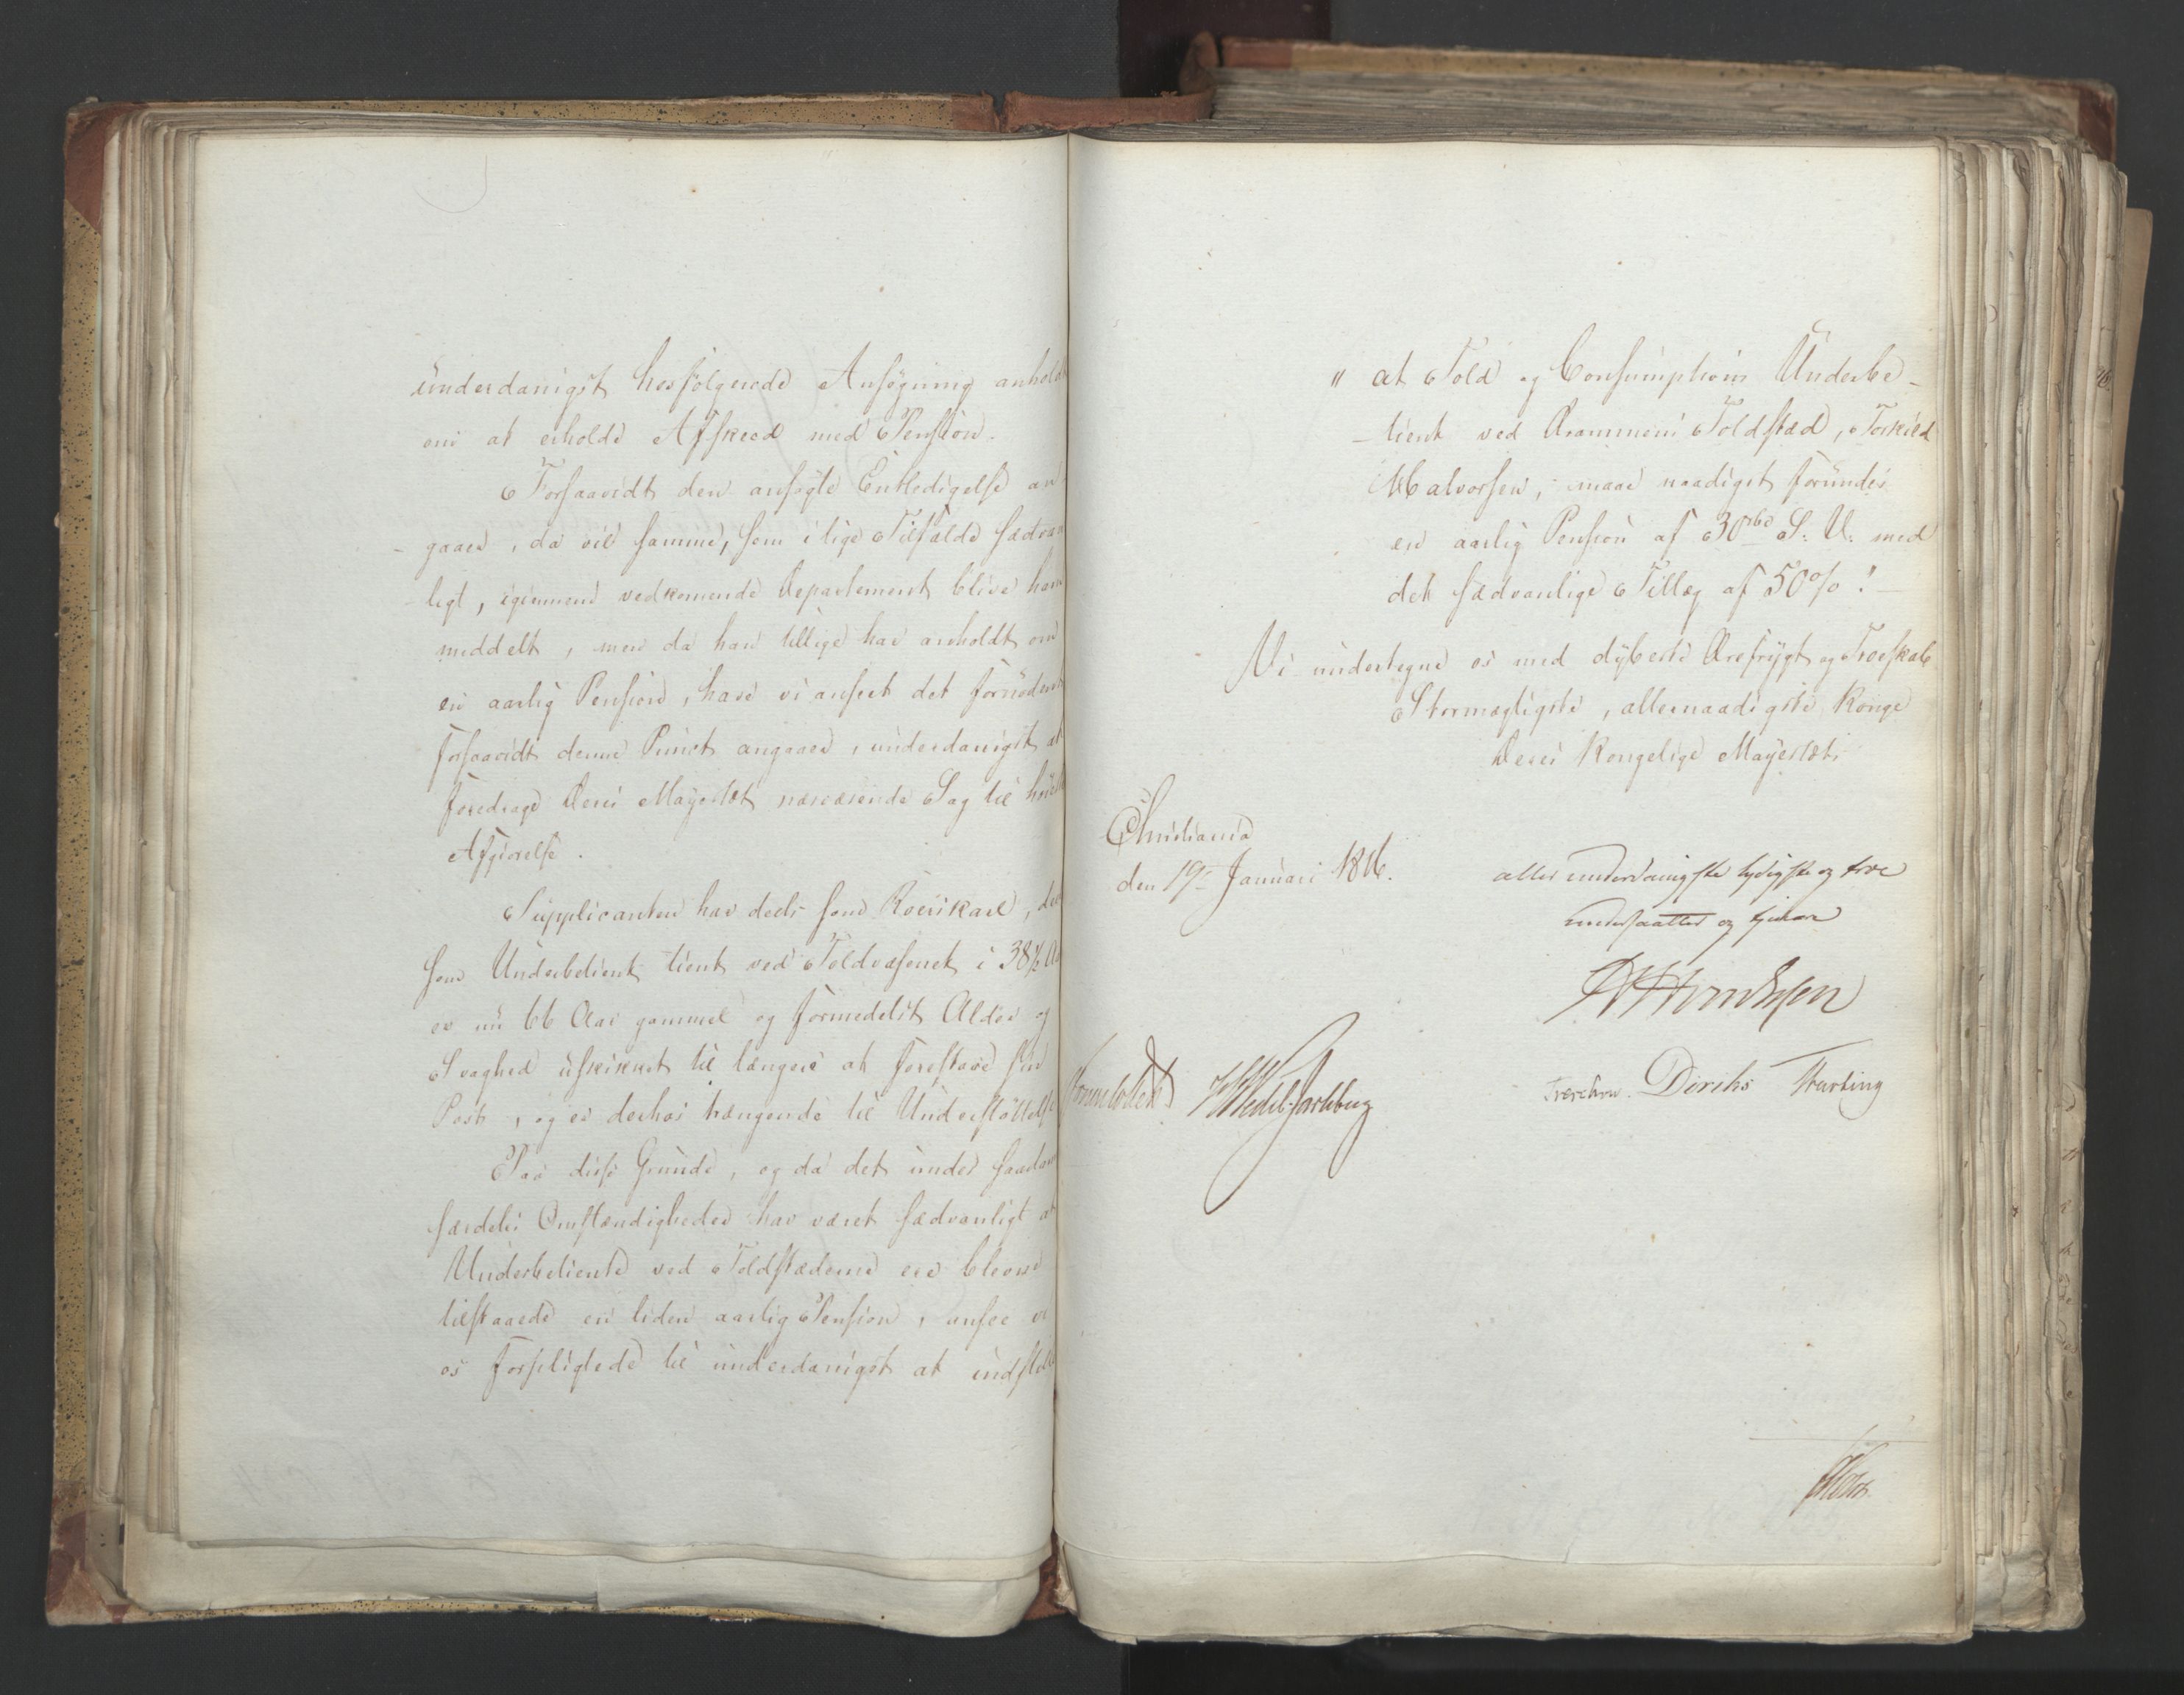 underdanigst hosfølgende Ansøgning anholdt
om at erholde Afskeed med Pension.
Forsaavidt den ansøgte Entledigelse an-
gaaer, da vil samme, som i lige Tilfælde sædvan-
ligt, igiennem vedkommende Departement blive ham
meddelt, men da han tillige har anholdt om
en aarlig Pension, have vi anseet det fornødent
forsaavidt denne Punct angaaer, underdanigst at
foredrage Deres Mayestæt nærværende Sag til høieste
Afgiørelse.
Supplicanten har deels som Roerskarl, deels
som Underbetient tient ved Toldvæsenet i 38½ Aar
er nu 66 Aar gammel og formedelst Alder og
Svaghed uskikket til længere at forestaae sin
Post, og er derhos trængende til Understøttelse
Paa disse Grunde, og da det under saadanne
særdeles Omstændigheder har været sædvanligt at
Underbetiente ved Toldstæderne ere blevne
tilstaaede en liden aarlig Pension, ansee vi
os forpligtede til underdanigst at indstille
" at Told og Consumptions Underbe-
-tient ved Drammens Toldsted, Torkild
Halvorsen, maae naadigst forundes
en aarlig Pension af 30 rbd S: V: med
det sædvanlige Tillæg af 50%!
Vi undertegne os med dybeste Ærefrygt og Troeskab
Stormægtigste, allernaadigste Konge
Deres Kongelige Mayestæts
Christiania
den 19de Januari 1816.
allerunderdanigste lydigste og troe
undersaatter og tjenere
Sommerfeldt HWedel-Jarlsberg
Treschow. Diriks